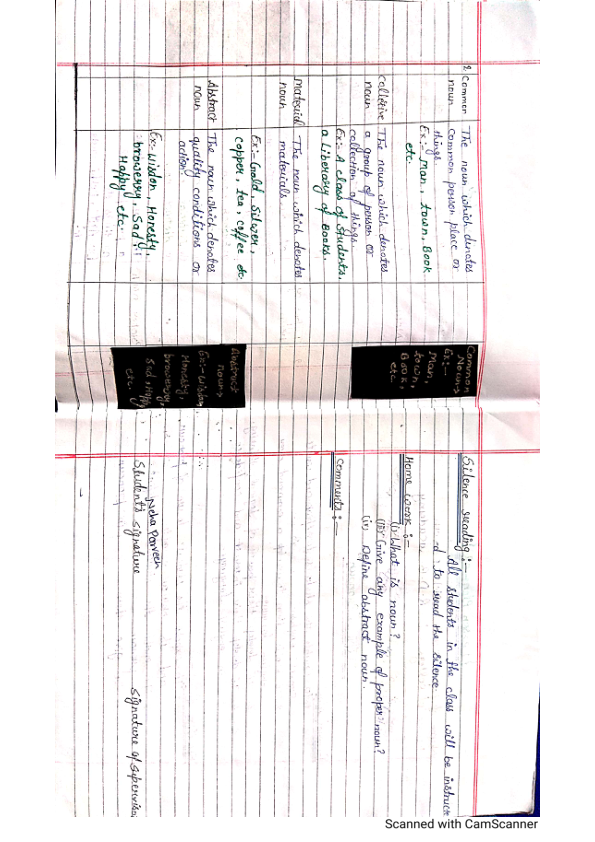 2. Common noun
The noun which denotes
common person place or
things.
Ex:- Man, town, Book
etc.
Colletive noun
The noun which denotes
a group of person or
collection of things.
Ex:- A class of students,
a Liberary of Books.
Material noun
The noun which denotes
materials.
Ex:- Goald, Silver,
copper, tea, coffee etc
Abstract noun
The noun which denotes
quality conditions or
action.
Ex:- Wisdon, Honesty,
browerry, Sad,
Happy etc.
Common
Nouns
Ex:-
Man,
town,
Book,
etc
Abstract
nouns
Honesty
browerry,
Sad, Happy
etc.
Silence reading :-
All students in the class will be instruct
-d to read the silence
Home work :-
(i) What is noun?
(ii) Give any example of proper noun?
(iv) Define abstract noun.
Comments :-
Neha Parveen
Student's signature
Signature of supervisor
Scanned with CamScanner